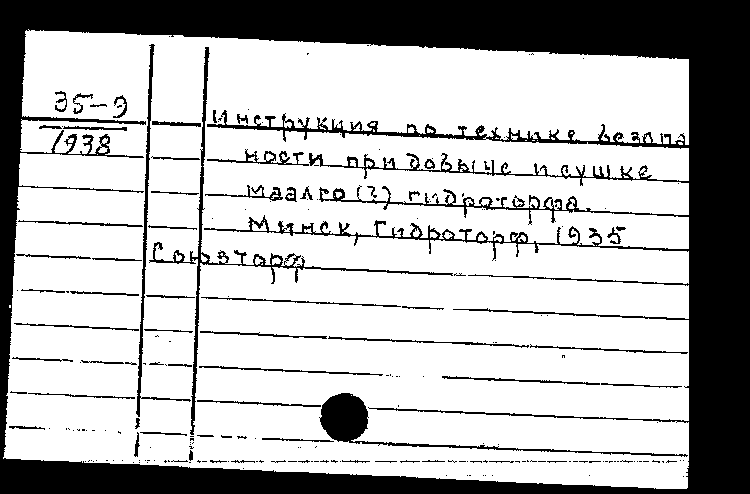 35-9
1938
Инструкция по технике безопа
ности при добыче и сушке
маалго (?) гидроторфа.
Минск, Гидроторф, 1935
Союзторф